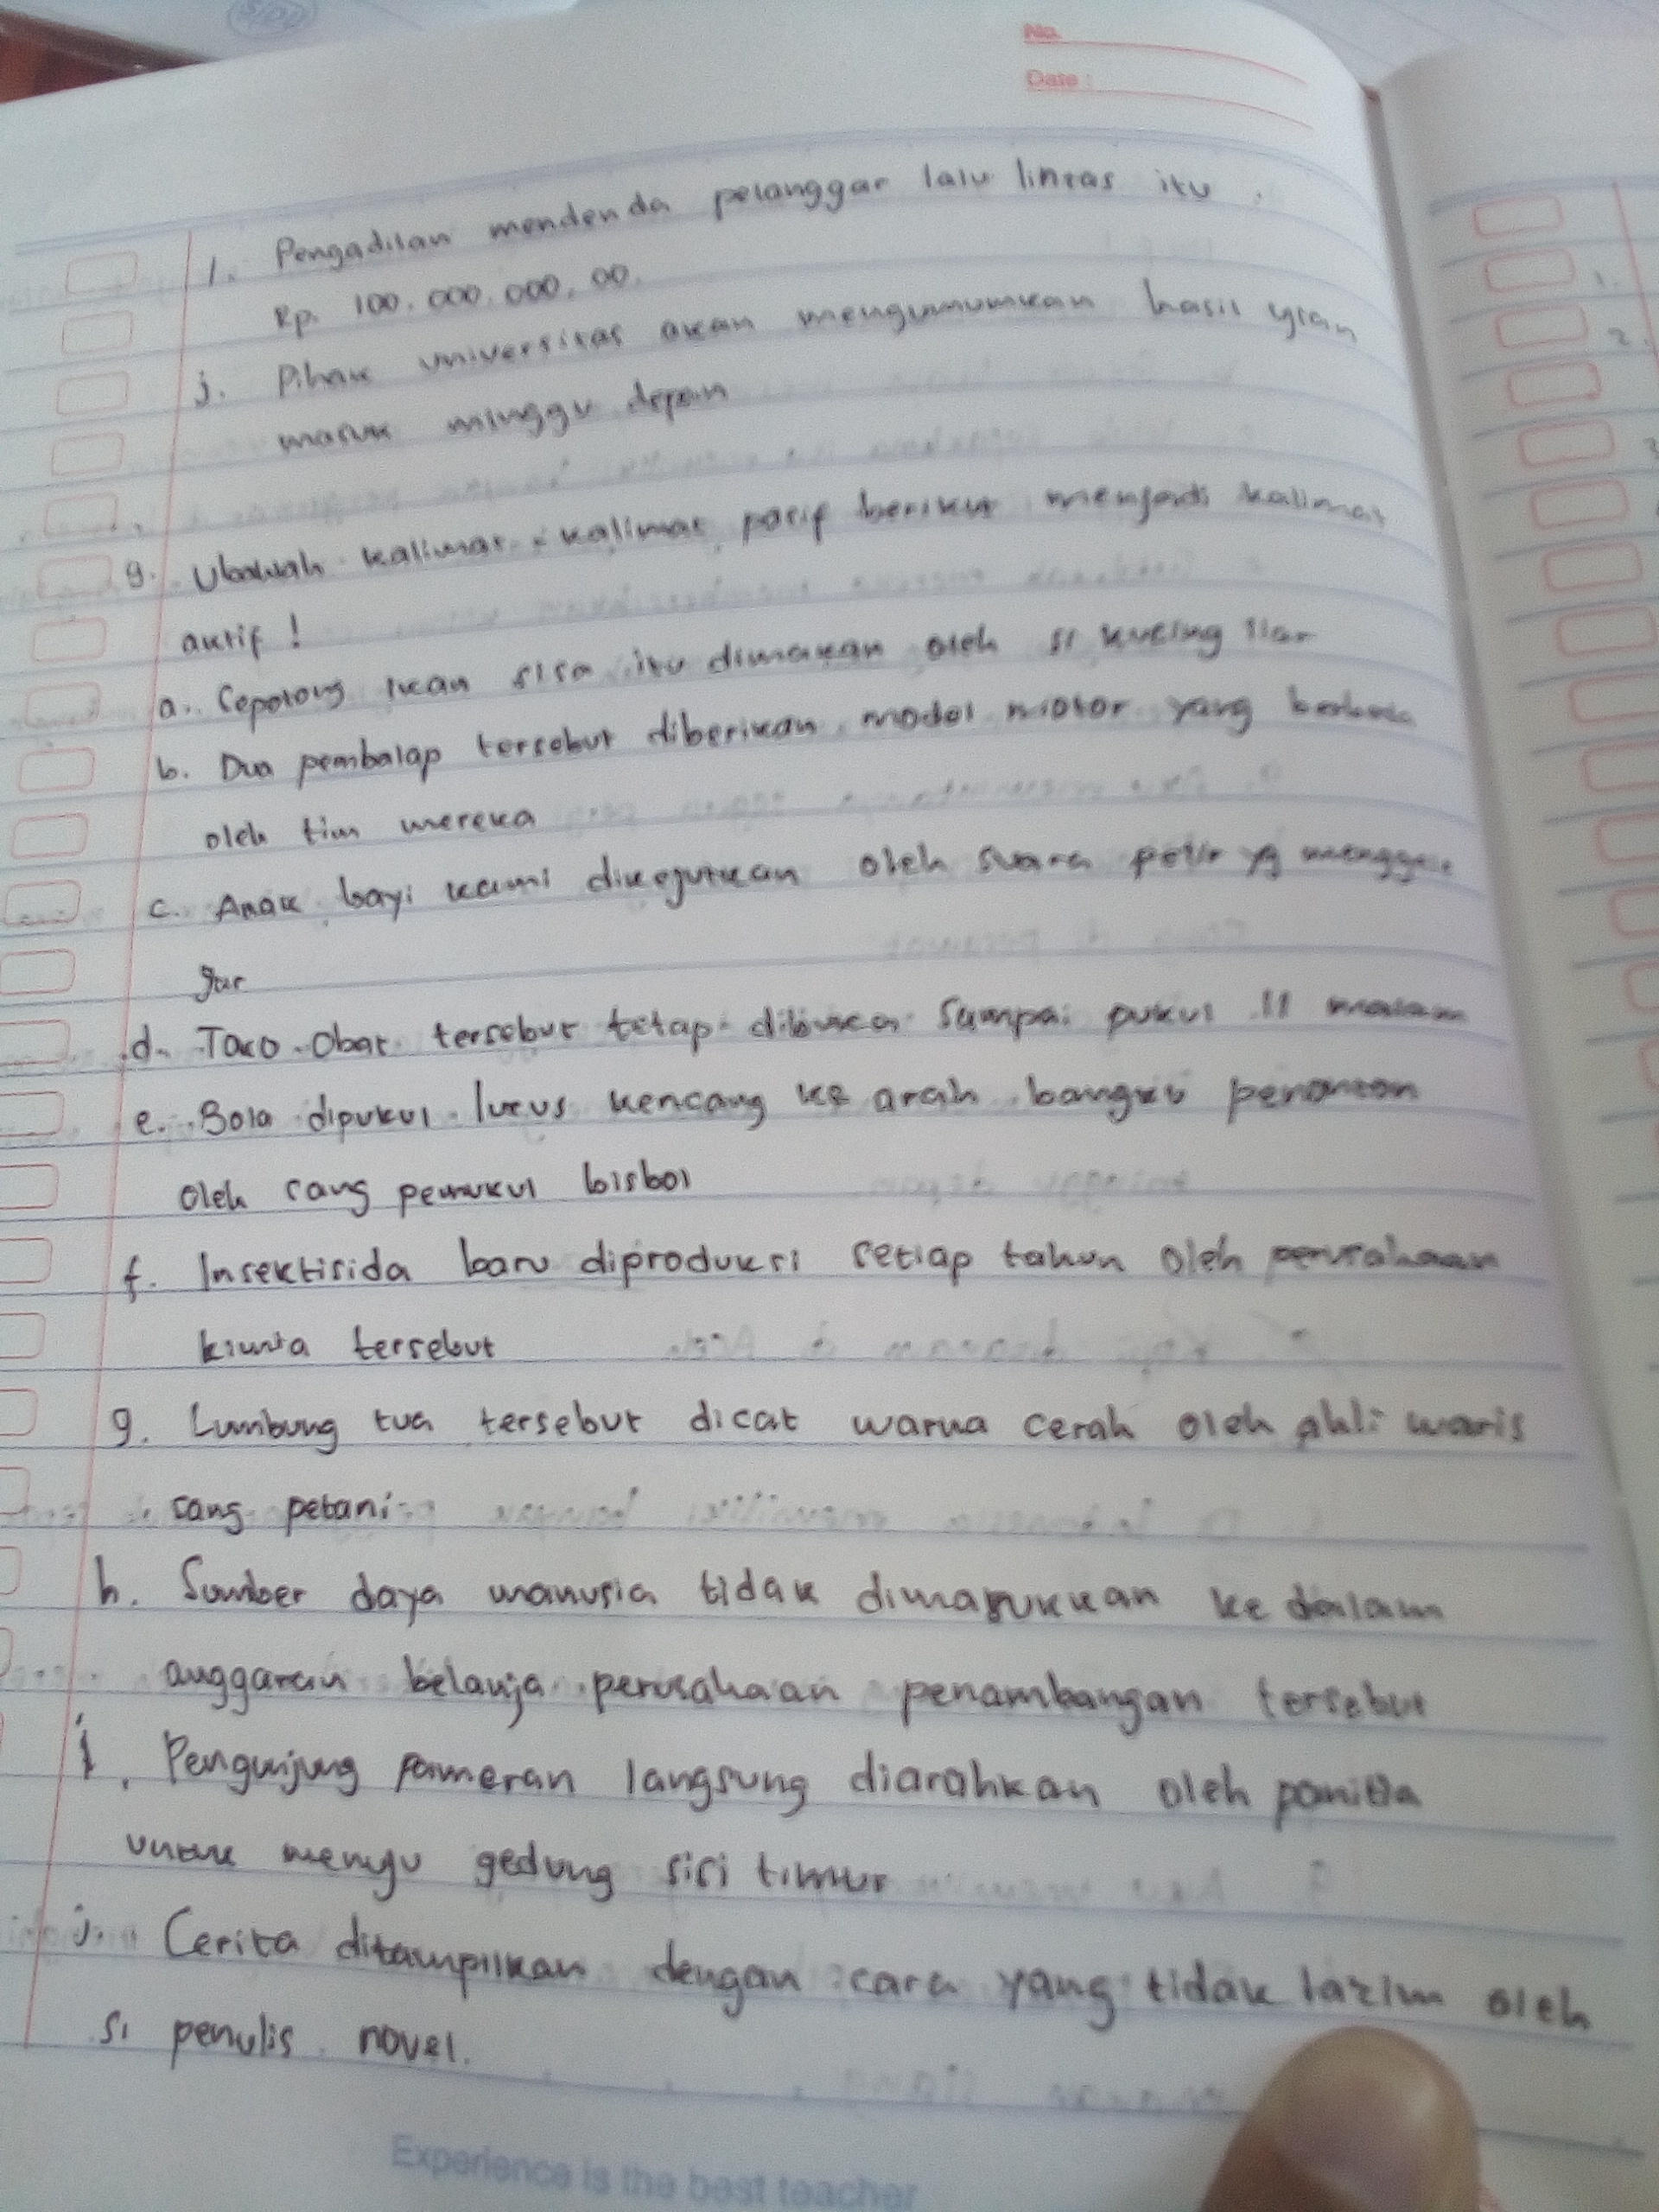 No.
Date :
1. Pengadilan mendenda pelanggar lalu lintas itu
Rp. 100.000.000,00.
j. Pihak universitas akan mengumumkan hasil ujian
masuk minggu depan
9. Ubahlah kalimat-kalimat pasif berikut menjadi kalimat
aktif !
a. Sepotong ikan sisa itu dimakan oleh si kucing liar
b. Dua pembalap tersebut diberikan model motor yang
oleh tim mereka
c. Anak bayi kami dikejutkan oleh suara petir yg mengge
gar
d. Toko Obat tersebut tetap dibuka sampai pukul 11 malam
e. Bola dipukul lurus kencang ke arah bangku penonton
oleh sang pemukul bisbol
f. Insektisida baru diproduksi setiap tahun oleh perusahaan
kimia tersebut
g. Lumbung tua tersebut dicat warna cerah oleh ahli waris
sang petani
h. Sumber daya manusia tidak dimasukkan ke dalam
anggaran belanja perusahaan penambangan tersebut
i. Pengunjung pameran langsung diarahkan oleh panitia
untuk menuju gedung sisi timur
j. Cerita ditampilkan dengan cara yang tidak lazim oleh
si penulis novel.
Experience is the best teacher
1.
2.